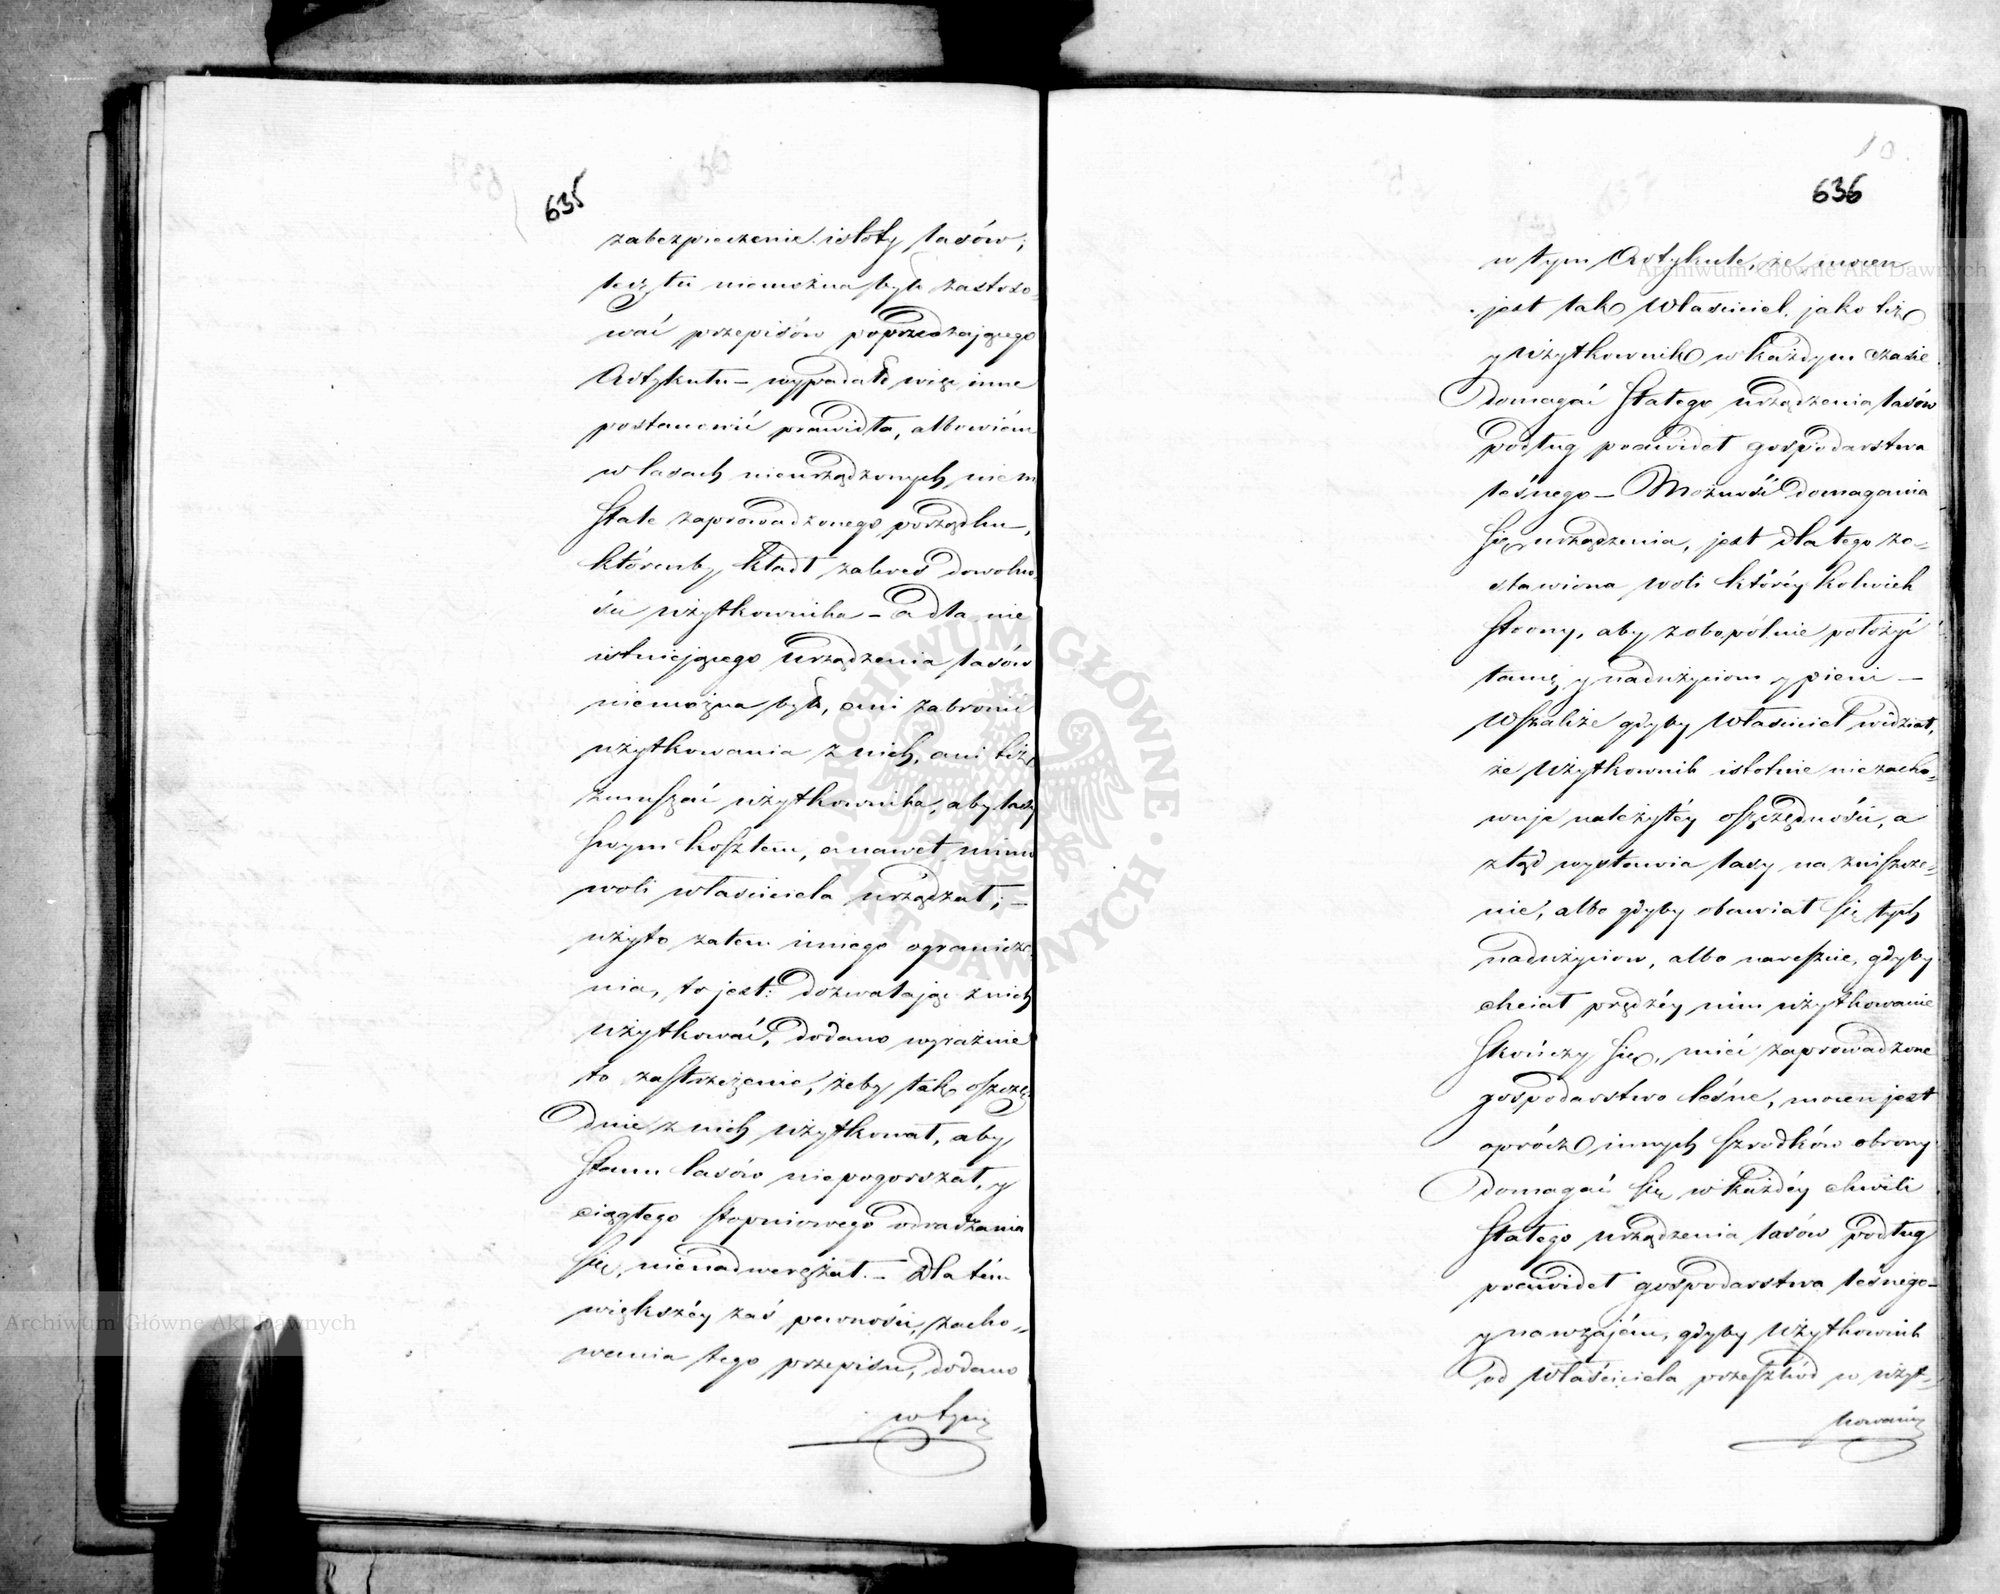 635
zabezpieczenie istoty lasów;
lecz tu niemożna było zastoso-
wać przepisów poprzedzającego
Artykułu – wypadało więc inne
postanowić prawidła, albowiem
w lasach nieurządzonych niem
stale zaprowadzonego porządku,
którenby kładł zakres dowolno-
ści użytkownika – a dla nie
istniejącego urządzenia lasów
niemożna było, ani zabronić
użytkowania z nich, ani też
zmuszać użytkownika, aby lasy
swym kosztem, a nawet mimo
woli właściciela urządzał; –
użyto zatem innego ogranicze-
nia, to jest: dozwalając z nich
użytkować, dodano wyraźnie
to zastrzeżenie, żeby tak oszczę-
dnie z nich użytkował, aby
stanu lasów niepogorszał, y
ciągłego stopniowego odradzania
się, nienadwerężał. – Dla tém
większéy zaś pewności, zacho-
wania tego przepisu, dodano
w tym
10.
636
w tym Artykule, że mocen
jest tak Właściciel, jako też
y użytkownik w każdym czasie
domagać stałego urządzenia lasów
podług prawideł gospodarstwa
leśnego – Możność domagania
się urządzenia, jest dla tego zo-
stawiona woli któréy kolwiek
strony, aby zobopólnie położyć
tamę y nadużyciom y pieni –
Wszakże gdyby Właściciel widział,
że Użytkownik istotnie niezacho-
wuje należytéy oszczędności, a
ztąd wystawia lasy na zniszcze-
nie, albo gdyby obawiał się tych
nadużyciow, albo nareszcie, gdyby
chciał prędzéy nim użytkowanie
skończy się, mieć zaprowadzone
gospodarstwo leśne, mocen jest
oprócz innych szrodków obrony
domagać się w każdéy chwili
stałego urządzenia lasów podług
prawideł gospodarstwa leśnego –
y nawzajém, gdyby Użytkownik
od Właściciela przeszkód w użyt-
kowaniu
Archiwum Główne Akt Dawnych
Archiwum Główne Akt Dawnych
ARCHIWUM GŁÓWNE · AKT DAWNYCH ·